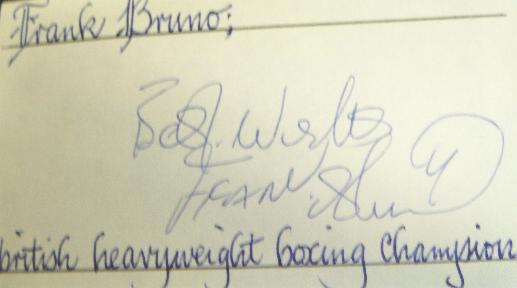 Frank Bruno;
Best Wishes
Frank Bruno
british heavyweight boxing champion